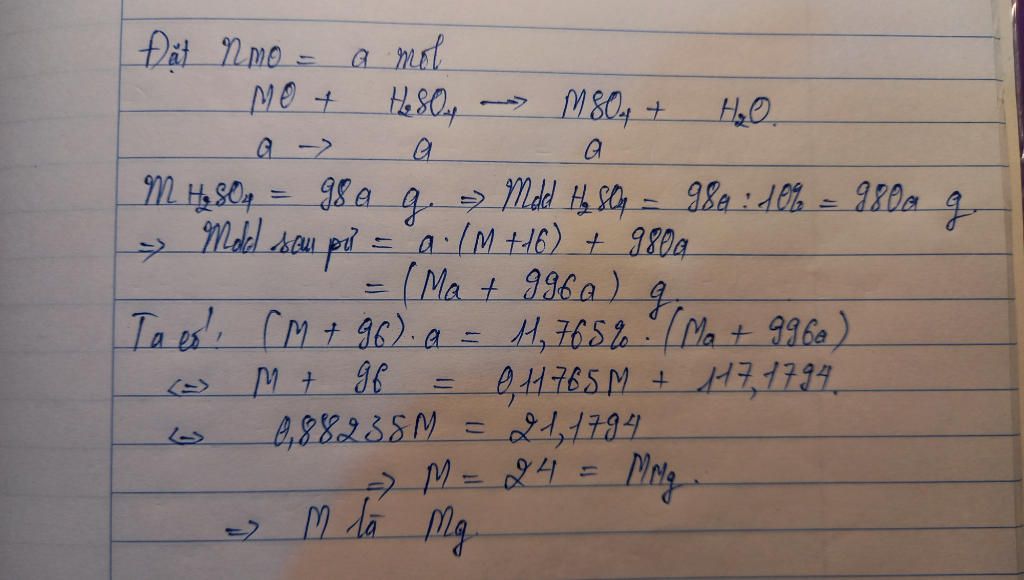 Đặt nMO = a mol
MO + H₂SO₄ → MSO₄ + H₂O.
a → a a
m H₂SO₄ = 98a g. ⇒ mdd H₂SO₄ = 98a : 10% = 980a g
⇒ mdd sau pứ = a.(M+16) + 980a
= (Ma + 996a) g.
Ta có: (M + 96).a = 11,765% . (Ma + 996a)
⇔ M + 96 = 0,11765M + 117,1794.
⇔ 0,88235M = 21,1794
⇒ M = 24 = MMg.
⇒ M là Mg.